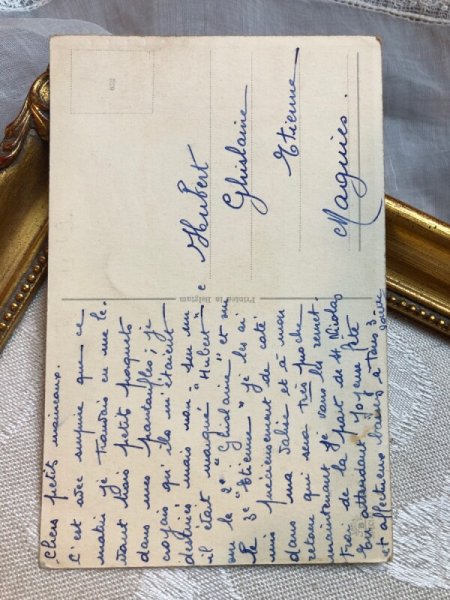 Chers petits moineaux.
C'est avec surprise que ce
matin je trouvais en me le-
vant trois petits paquets
dans mes pantoufles; je
voyais qu'ils m'étaient
destinés mais non sur un
il était marqué "Hubert"
sur le 2e "Ghislaine" et sur
le 3e "Etienne" je les ai
mis précieusement de coté
dans ma valise et à mon
retour qui sera très proche
maintenant je vous les remet-
trai de la part de St Nicolas
En attendant joyeuse fête
et affectueux baisers à tous 3
Printed in Belgium
Hubert
Ghislaine
Etienne